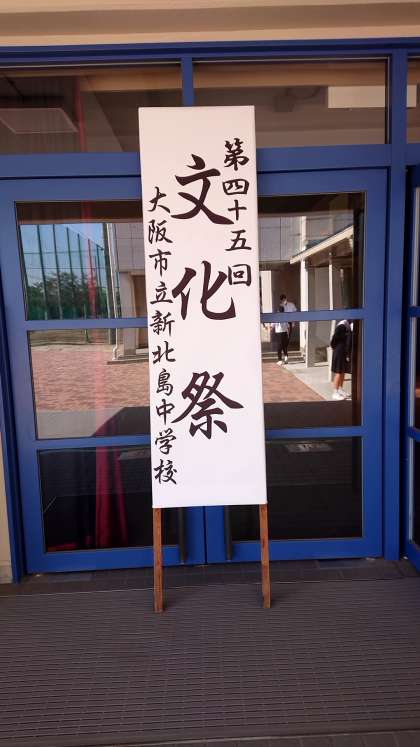 第四十五回
文化祭
大阪市立新北島中学校